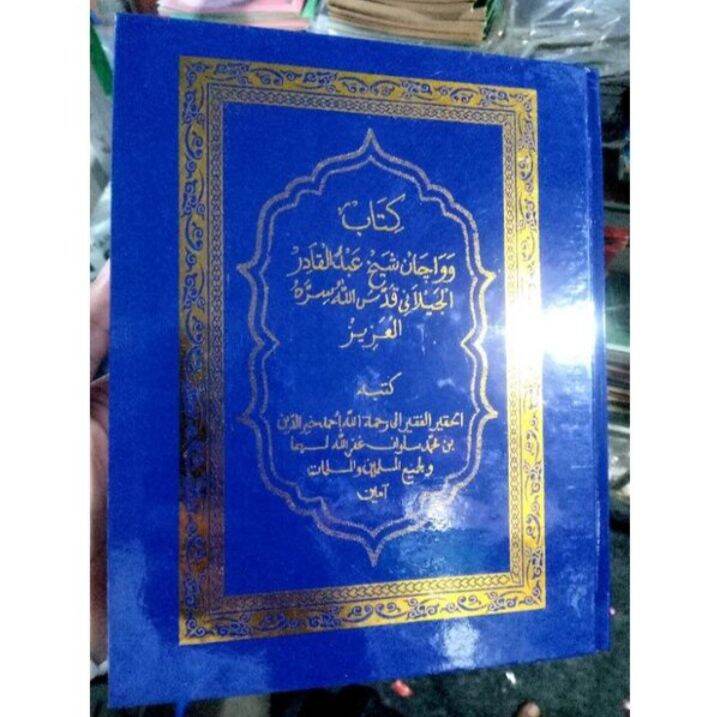 كِتَابْ
وَوَاچَانْ شَيْخْ عَبْدُ الْقَادِرْ
الْجَيْلَانِي قَدَّسَ اللّٰهُ سِرَّهُ
الْعَزِيزْ
كتبه
الحقير الفقير إلى رحمة الله أحمد خير الدين
بن محمد غفر الله لهما
ولجميع المسلمين والمسلمات
آمين